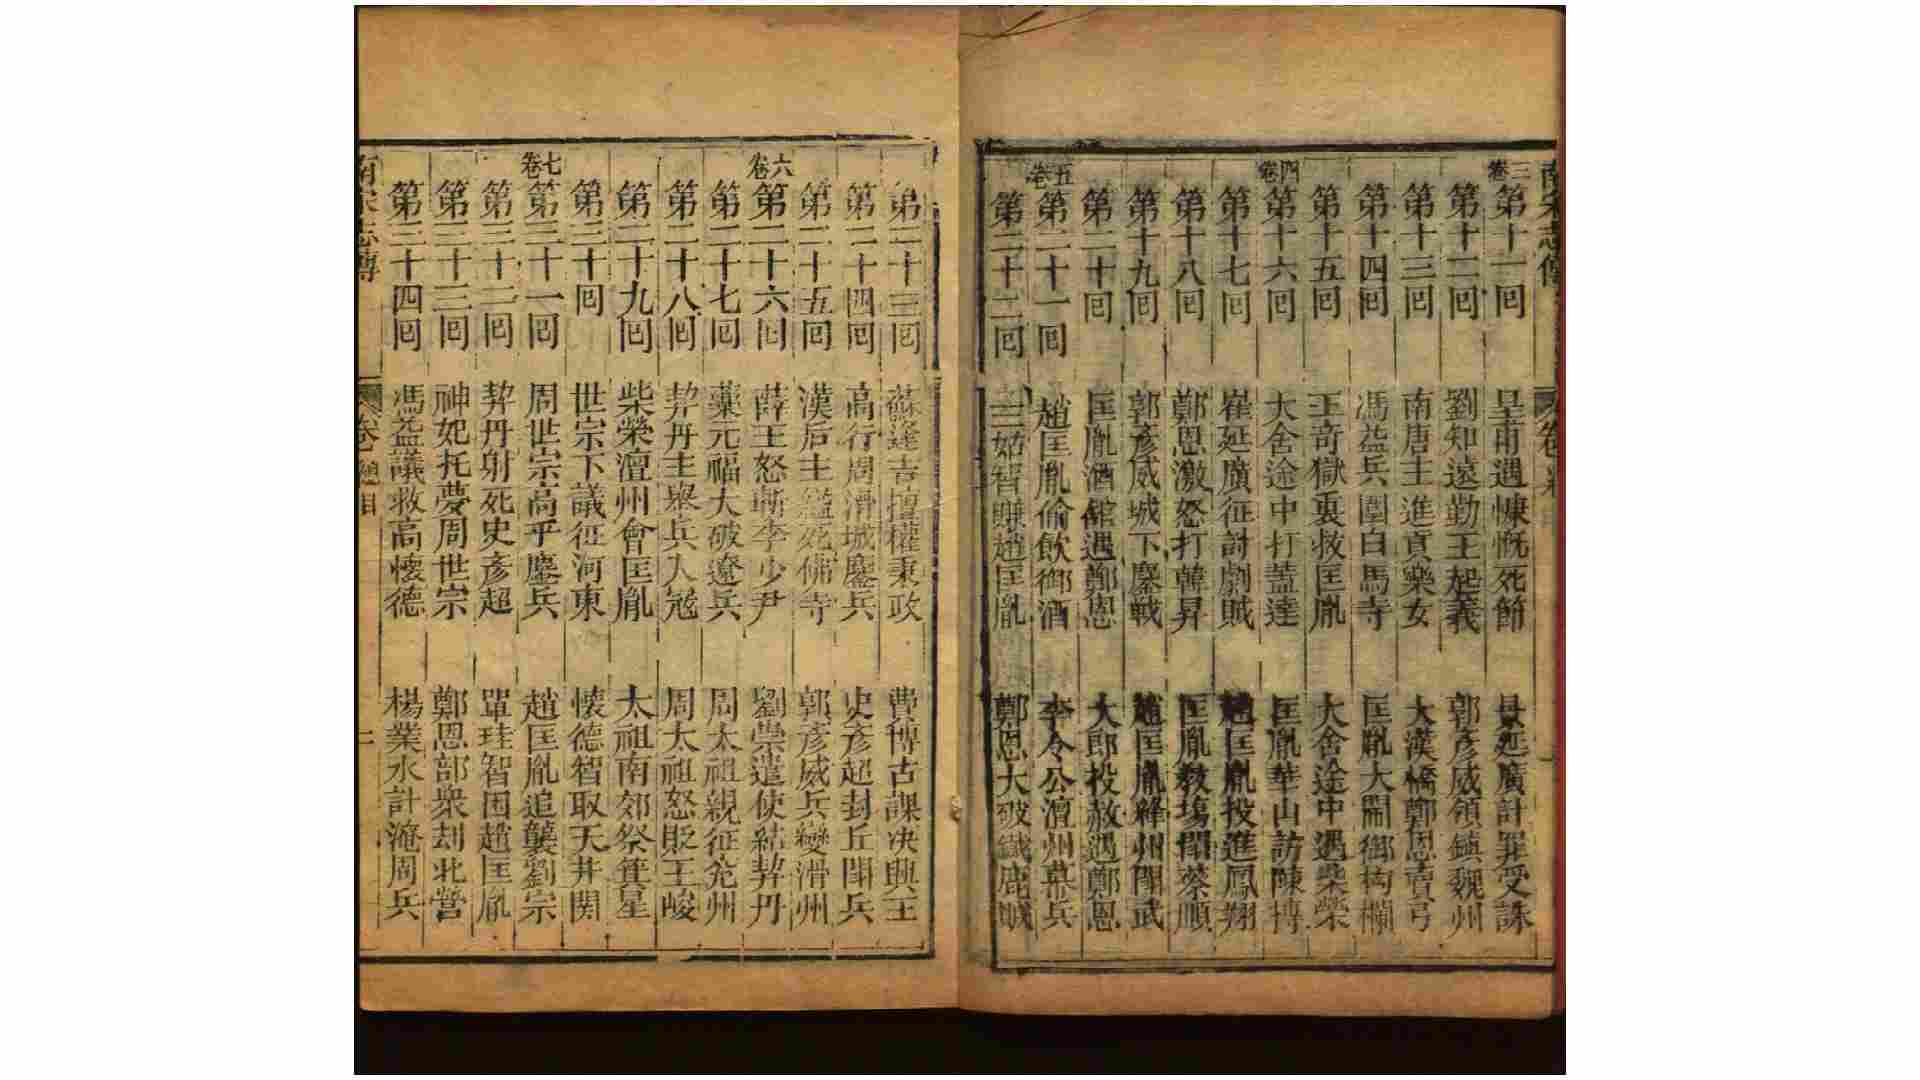 南宋志傳 卷 目
三卷 第十一回 皇甫遇慷慨死節 景延廣計罪受誅
第十二回 劉知遠勤王起義 郭彥威領鎮魏州
第十三回 南唐主進貢樂女 大漢橋鄭恩賣弓
第十四回 馮益兵圍白馬寺 匡胤大鬧御构欄
第十五回 王奇獄裏救匡胤 大舍途中遇柴榮
四卷 第十六回 大舍途中打蓋達 匡胤華山訪陳摶
第十七回 崔延廣征討劇賊 趙匡胤投進鳳翔
第十八回 鄭恩激怒打韓昇 匡胤教塲閙蔡順
第十九回 郭彥威城下鏖戰 趙匡胤絳州閙武
第二十回 匡胤酒館遇鄭恩 大郎投赦遇鄭恩
五卷 第二十一回 趙匡胤偷飲御酒 李令公澶州募兵
第二十二回 三姑智賺趙匡胤 鄭恩大破鐵鹿賊
第二十三回 蘇逢吉擅權秉政 費博古課决興王
第二十四回 高行周滑城鏖兵 史彥超封丘閙兵
第二十五回 漢后主縊死佛寺 郭彥威兵變滑州
六卷 第二十六回 薛王怒斬李少尹 劉崇遣使結契丹
第二十七回 藥元福大破遼兵 周太祖親征兖州
第二十八回 契丹主舉兵入冦 周太祖怒貶王峻
第二十九回 柴榮澶州會匡胤 太祖南郊祭箕星
第三十回 世宗下議征河東 懐德智取天井関
七卷 第三十一回 周世宗高平鏖兵 趙匡胤追襲劉宗
第三十二回 契丹射死史彥超 單珪智困趙匡胤
第三十三回 神妃托夢周世宗 鄭恩部衆刦北營
第三十四回 馮益議救高懐德 楊業水計滛周兵
南宋志傳 卷 總目 二